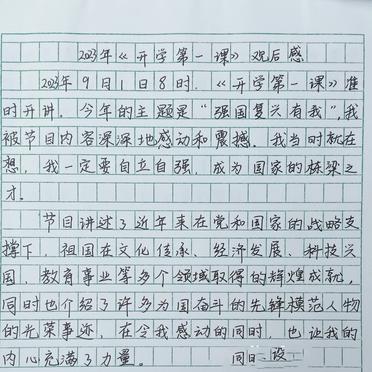 2023年《开学第一课》观后感
2023年9月1日8时，《开学第一课》准
时开讲。今年的主题是“强国复兴有我”，我
被节目内容深深地感动和震撼。我当时就在
想，我一定要自立自强，成为国家的栋梁之
才。
节目讲述了近年来在党和国家的战略支
撑下，祖国在文化传承、经济发展、科技兴
国、教育事业等多个领域取得的辉煌成就，
同时也介绍了许多为国奋斗的先锋模范人物
的光荣事迹，在令我感动的同时，也让我的
内心充满了力量。